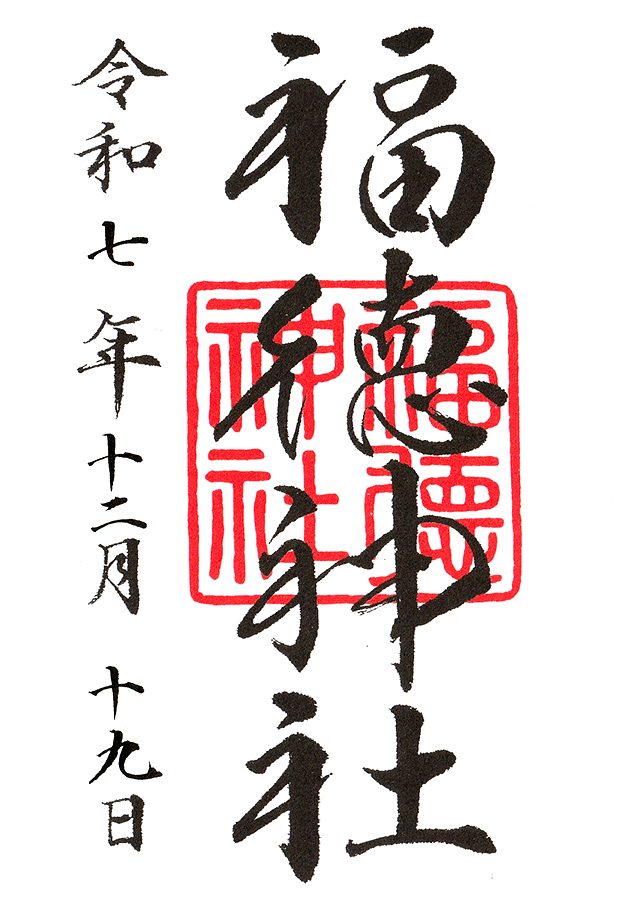 福徳神社
福徳
神社
令和七年十二月十九日